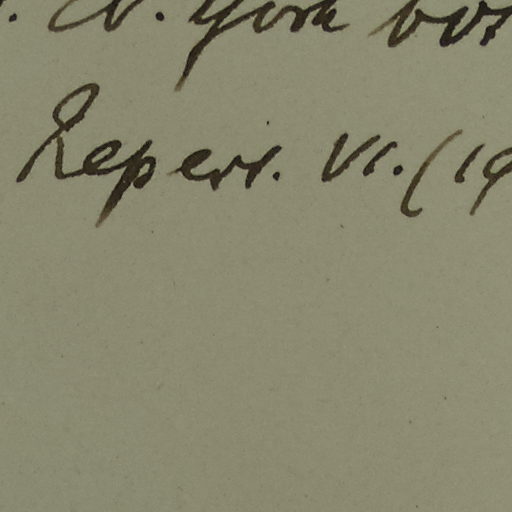 N. York bot
Repert. VI. (19